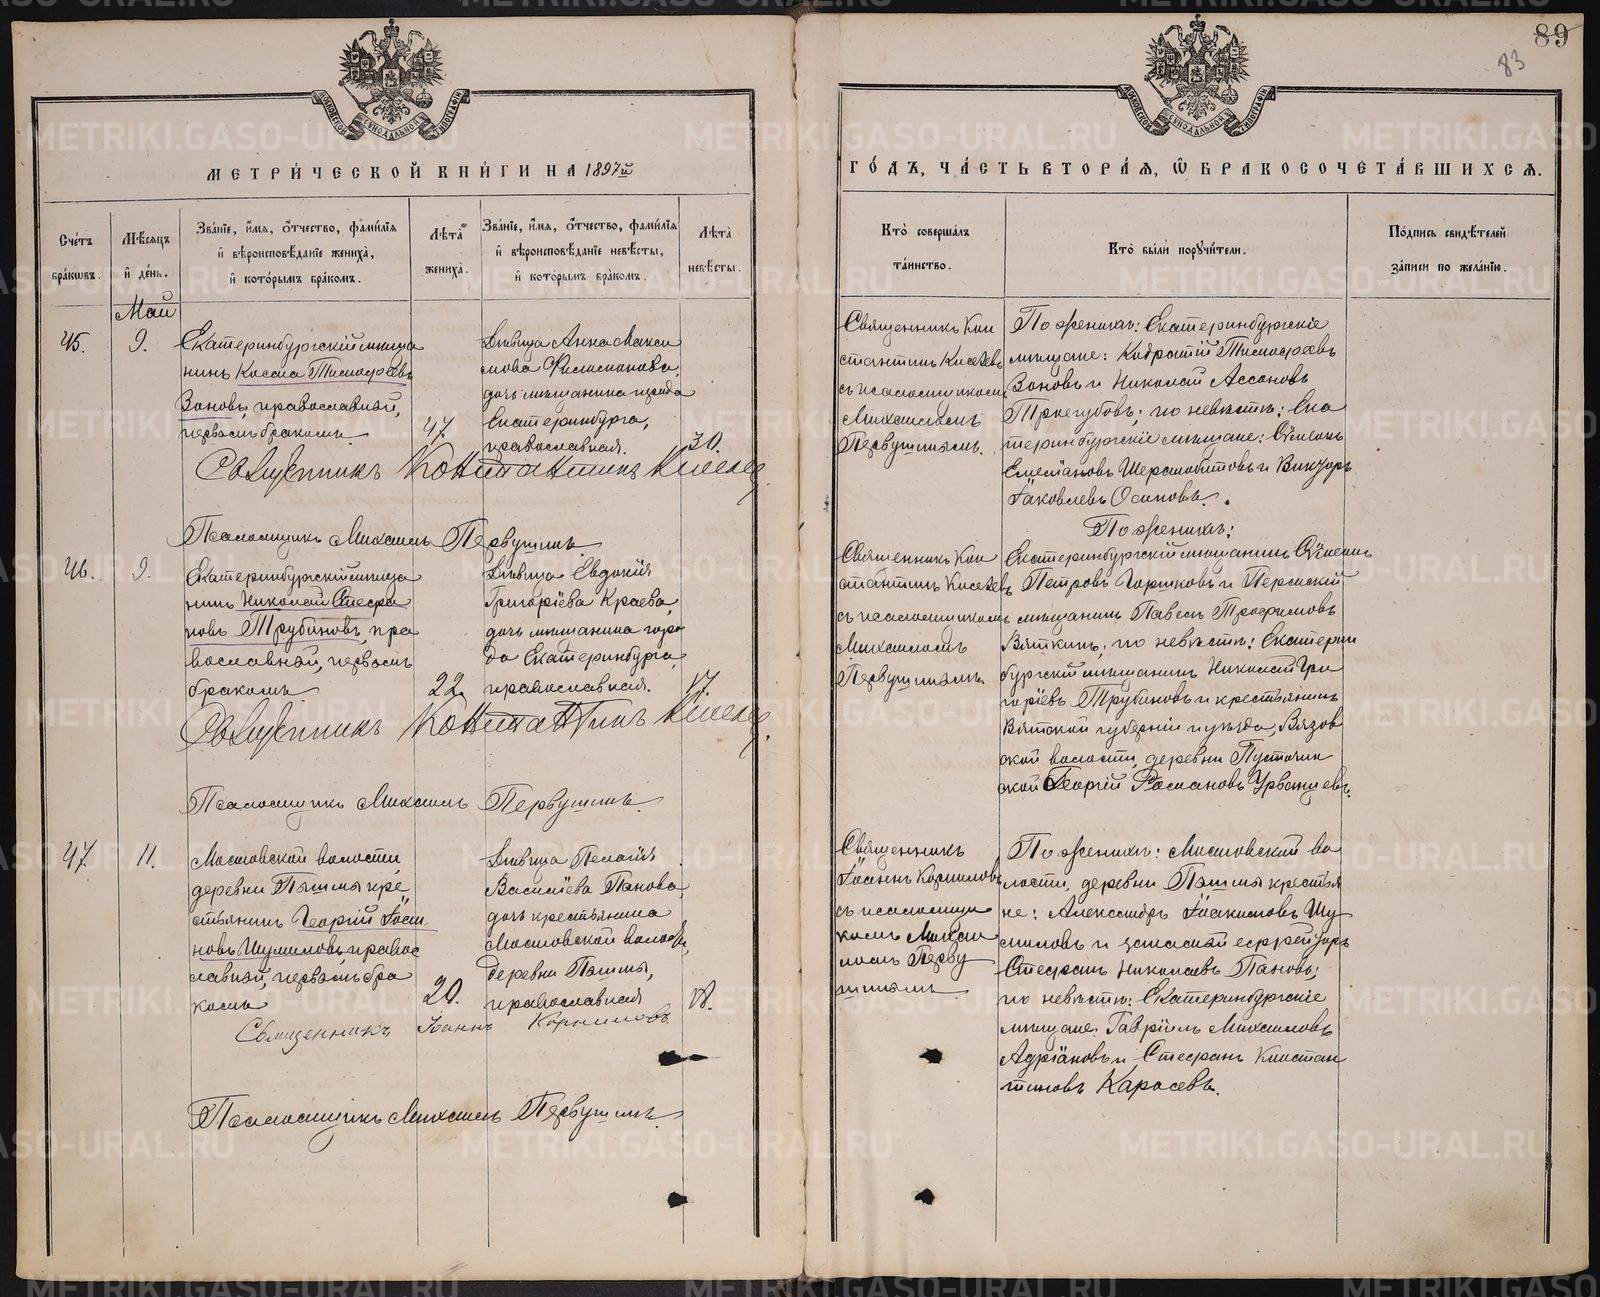 89
83
МЕТРИ́ЧЕСКОЙ КНИ́ГИ НА 1897й
ГО́ДЪ, ЧА́СТЬ ВТОРА́Я, Ѡ БРАКОСОЧЕТА́ВШИХСЯ.
Сче́тъ бра́кѡвъ.
Мѣ́сяцъ и҆ де́нь.
Зва́нїе, и҆́мя, ѻ҆́тчество, фами́лїя и҆ вѣроисповѣ́данїе жениха̀, и҆ кото́рымъ бра́комъ.
Лѣ́та жениха̀.
Зва́нїе, и҆́мя, ѻ҆́тчество, фами́лїя и҆ вѣроисповѣ́данїе невѣ́сты, и҆ кото́рымъ бра́комъ.
Лѣ́та невѣ́сты.
Кто̀ соверша́лъ та́инство.
Кто̀ бы́ли поручи́тели.
По́дпись свидѣ́телей за́писи по жела́нїю.
Май
45.
9.
Екатеринбургскій мѣща
нинъ Косма Тимофѣевъ
Зоновъ, православный,
первымъ бракомъ.
47.
Дѣвица Анна Макси
мова Филимонова,
дочь мѣщанина города
Екатеринбурга,
православная.
30.
Священникъ Кон
стантинъ Киселевъ
съ псаломщикомъ
Михаиломъ
Первушинымъ.
По женихѣ: Екатеринбургскіе
мѣщане: Кодратій Тимофѣевъ
Зоновъ и Николай Ассоновъ
Трегубовъ; по невѣстѣ: Ека
теринбургскіе мѣщане: Сѵмеонъ
Емельяновъ Шерстобитовъ и Викторъ
Іаковлевъ Осиповъ.
Священникъ Константинъ Киселевъ
Псаломщикъ Михаилъ Первушинъ
46.
9.
Екатеринбургскій мѣща
нинъ Николай Стефа
новъ Трубиновъ, пра
вославный, первымъ
бракомъ
22.
Дѣвица Евдокія
Григоріева Краева,
дочь мѣщанина горо
да Екатеринбурга,
православная.
17.
Священникъ Кон
стантинъ Киселевъ
съ псаломщикомъ
Михаиломъ
Первушинымъ.
По женихѣ:
Екатеринбургскій мѣщанинъ Сѵмеонъ
Петровъ Горшковъ и Пермскій
мѣщанинъ Павелъ Трофимовъ
Вяткинъ; по невѣстѣ: Екатерин
бургскій мѣщанинъ Николай Гри
горіевъ Трубиновъ и крестьянинъ
Вятской губерніи и уѣзда, Вязов
ской волости, деревни
ской Георгій Романовъ Урванцевъ.
Священникъ Константинъ Киселевъ.
Псаломщикъ Михаилъ Первушинъ.
47.
11.
Мостовской волости,
деревни Пышмы кре
стьянинъ Георгій Іоан
новъ Шумиловъ, правос
лавный, первымъ бра
комъ
20.
Дѣвица Пелагія
Василіева Панова,
дочь крестьянина
Мостовской волости,
деревни Пышмы,
православная
18.
Священникъ
Іоаннъ Корниловъ
съ псаломщи
комъ Михаи
ломъ Перву
шинымъ
По женихѣ: Мостовской во
лости, деревни Пышмы крестья
не: Александръ Іоакимовъ Шу
миловъ и запасный ефрейторъ
Стефанъ Николаевъ Пановъ;
по невѣстѣ: Екатеринбургскіе
мѣщане: Гавріилъ Михаиловъ
Адріановъ и Стефанъ Констан
тиновъ Карасевъ.
Священникъ Іоаннъ Корниловъ
Псаломщикъ Михаилъ Первушинъ
METRIKI.GASO-URAL.RU